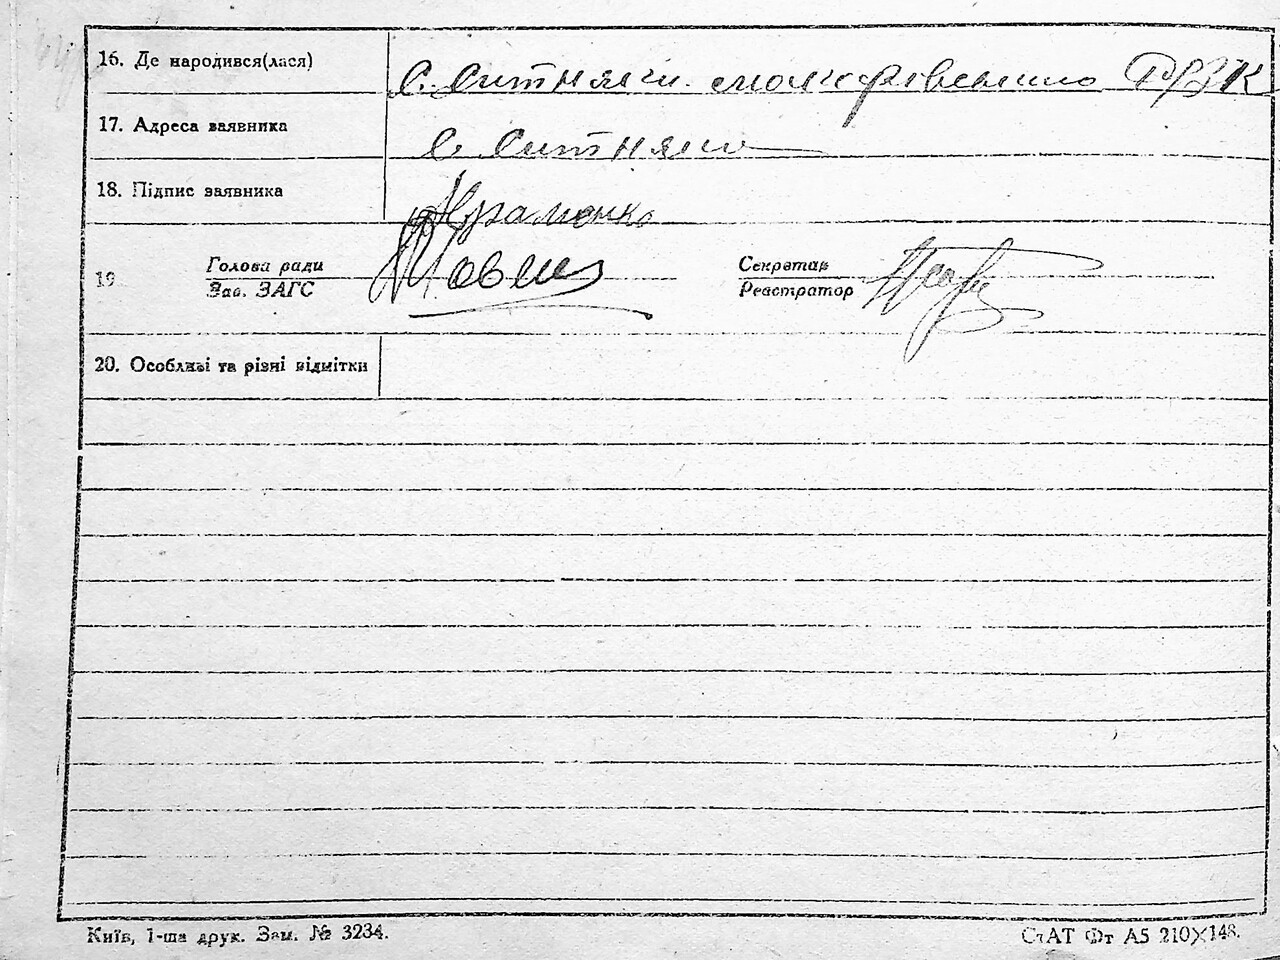 16. Де народився(лася) С. Ситняги
17. Адреса заявника с Ситняги
18. Підпис заявника
19 Голова ради Секретар
Зав. ЗАГС Реєстратор
20. Особливі та різні відмітки
Київ, 1-ша друк. Зам. № 3234.
СтАТ Фт А5 210×148.